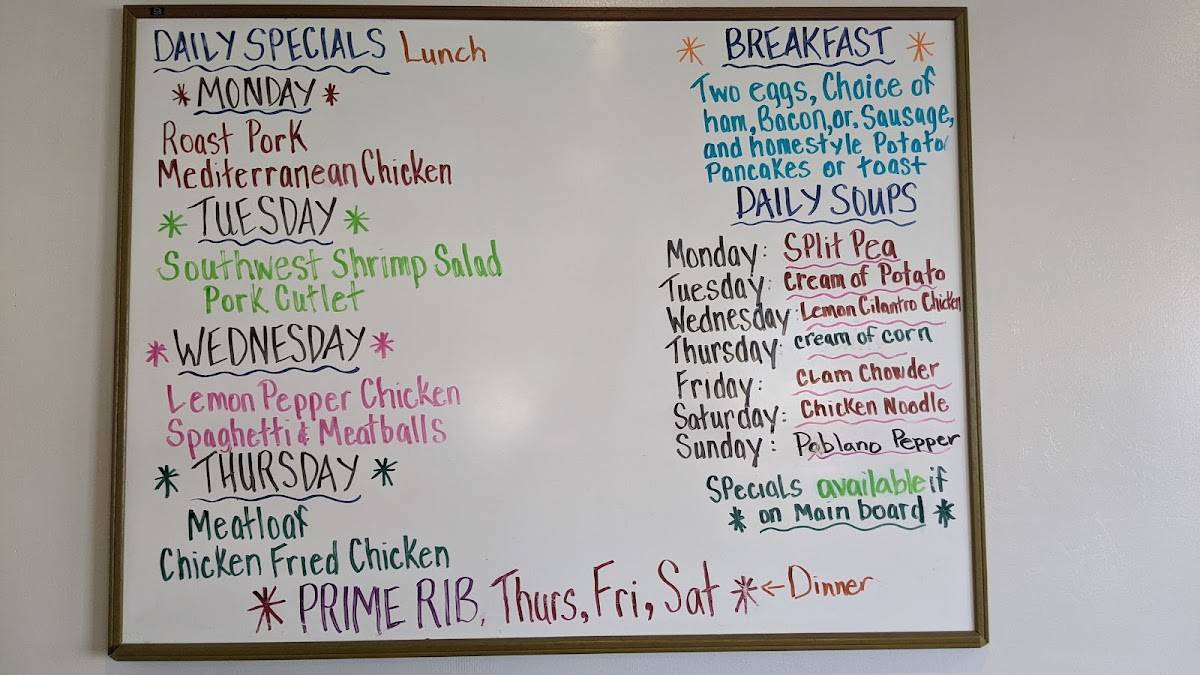 DAILY SPECIALS Lunch
* MONDAY *
Roast Pork
Mediterranean Chicken
* TUESDAY *
Southwest Shrimp Salad
Pork Cutlet
* WEDNESDAY *
Lemon Pepper Chicken
Spaghetti & Meatballs
* THURSDAY *
Meatloaf
Chicken Fried Chicken
* BREAKFAST *
Two eggs, Choice of
ham, Bacon, or. Sausage,
and homestyle Potato
Pancakes or toast
DAILY SOUPS
Monday: Split Pea
Tuesday: Cream of Potato
Wednesday: Lemon Cilantro Chicken
Thursday: cream of corn
Friday: Clam Chowder
Saturday: Chicken Noodle
Sunday: Poblano Pepper
Specials available if
* on Main board *
* PRIME RIB, Thurs, Fri, Sat * ← Dinner